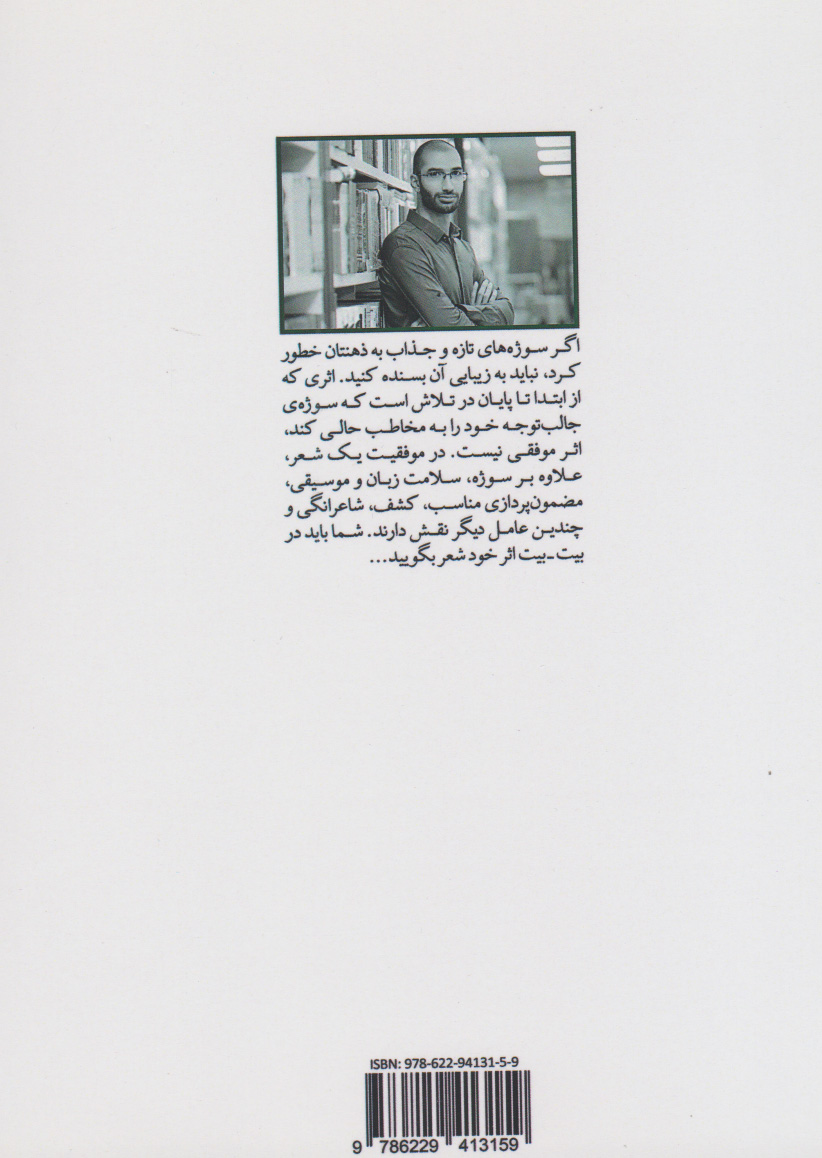 اگر سوژه‌های تازه و جذاب به ذهنتان خطور
کرد، نباید به زیبایی آن بسنده کنید. اثری که
از ابتدا تا پایان در تلاش است که سوژه‌ی
جالب‌توجه خود را به مخاطب حالی کند،
اثر موفقی نیست. در موفقیت یک شعر،
علاوه بر سوژه، سلامت زبان و موسیقی،
مضمون‌پردازی مناسب، کشف، شاعرانگی و
چندین عامل دیگر نقش دارند. شما باید در
بیت-بیت اثر خود شعر بگویید...
ISBN: 978-622-94131-5-9
9 786229 413159